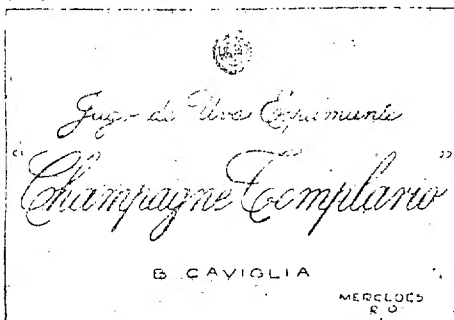 Jugo de Uva Espumante
"Champagne Templario"
B. CAVIGLIA
MERCEDES
R. O.